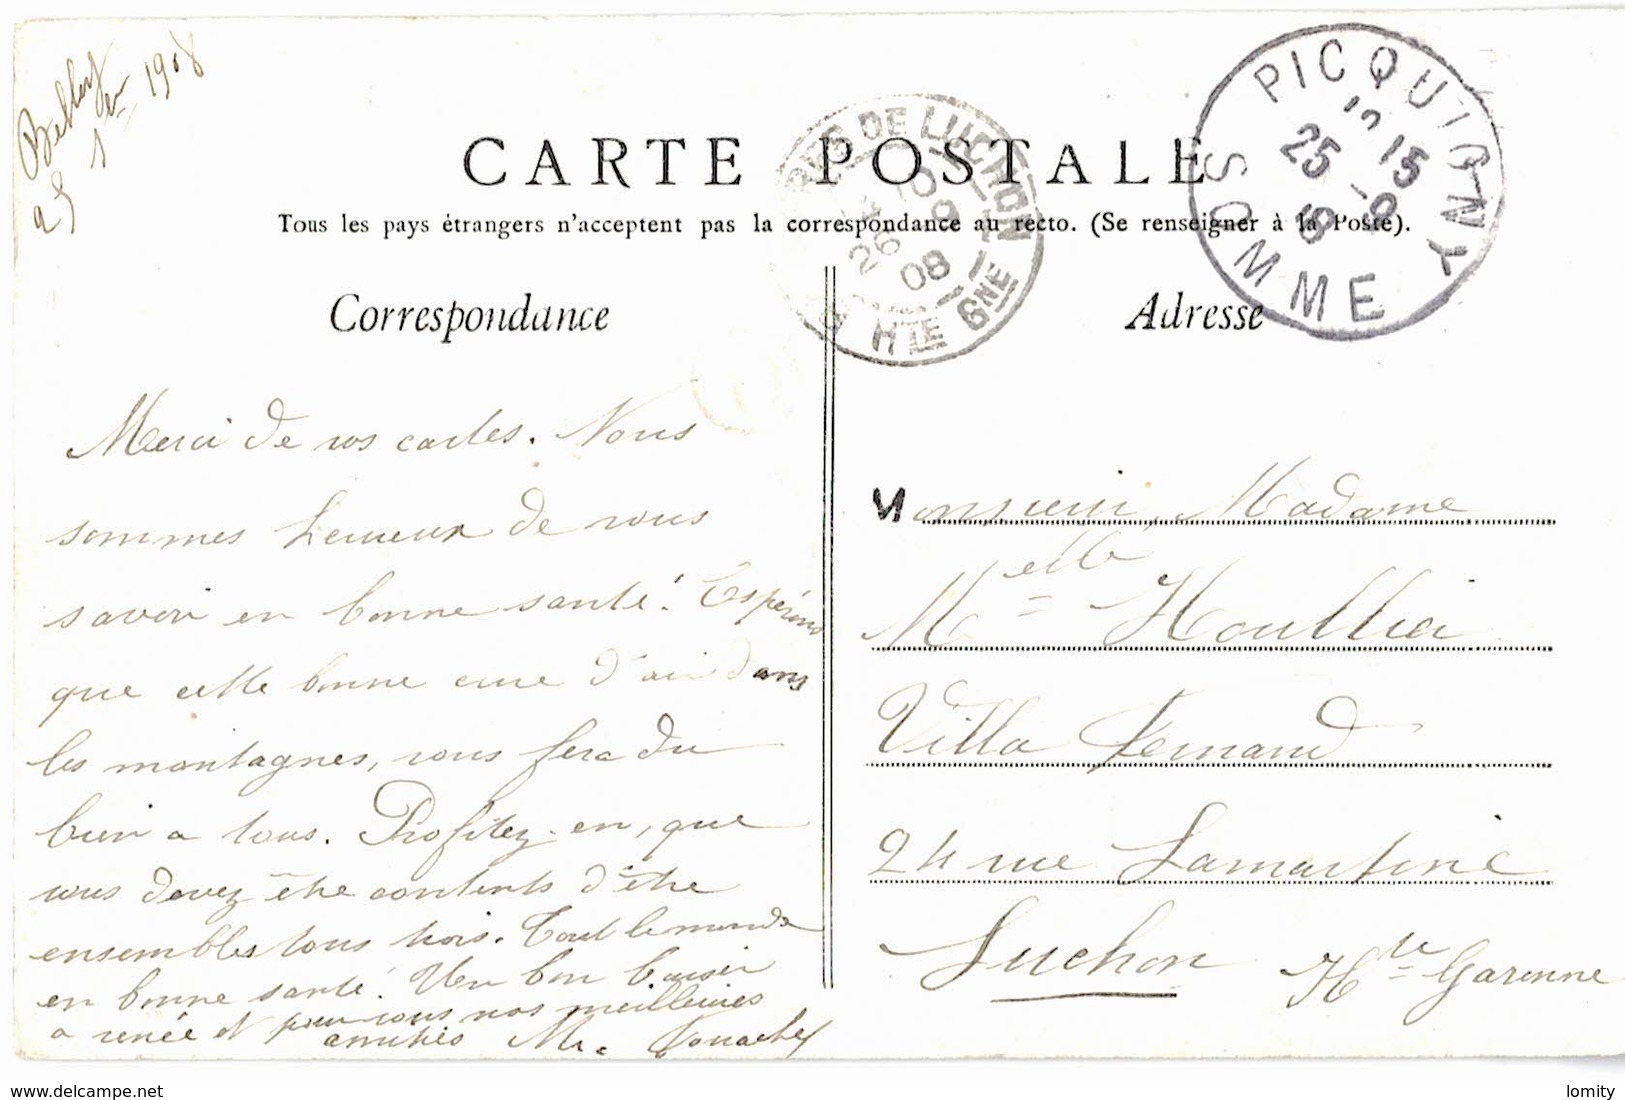 25 1908
CARTE POSTALE
Tous les pays étrangers n'acceptent pas la correspondance au recto. (Se renseigner à la Poste).
PICQUIGNY
SOMME
12 15
25 -9
08
DE LUCHON
26 -9
08
HTE GNE
Correspondance
Adresse
Merci de vos cartes. Nous
sommes heureux de vous
savoir en bonne santé. Espérons
que cette bonne cure d'air dans
les montagnes, vous fera du
bien a tous. Profitez-en, que
vous devez être contents d'être
ensembles tous trois. Tout le monde
en bonne santé. Un bon baiser
a renée et pour vous nos meilleures
amitiés M.
Monsieur, Madame
Melle Houllier
Villa Fernand
24 rue Lamartine
Luchon Hte Garonne
www.delcampe.net
lomity